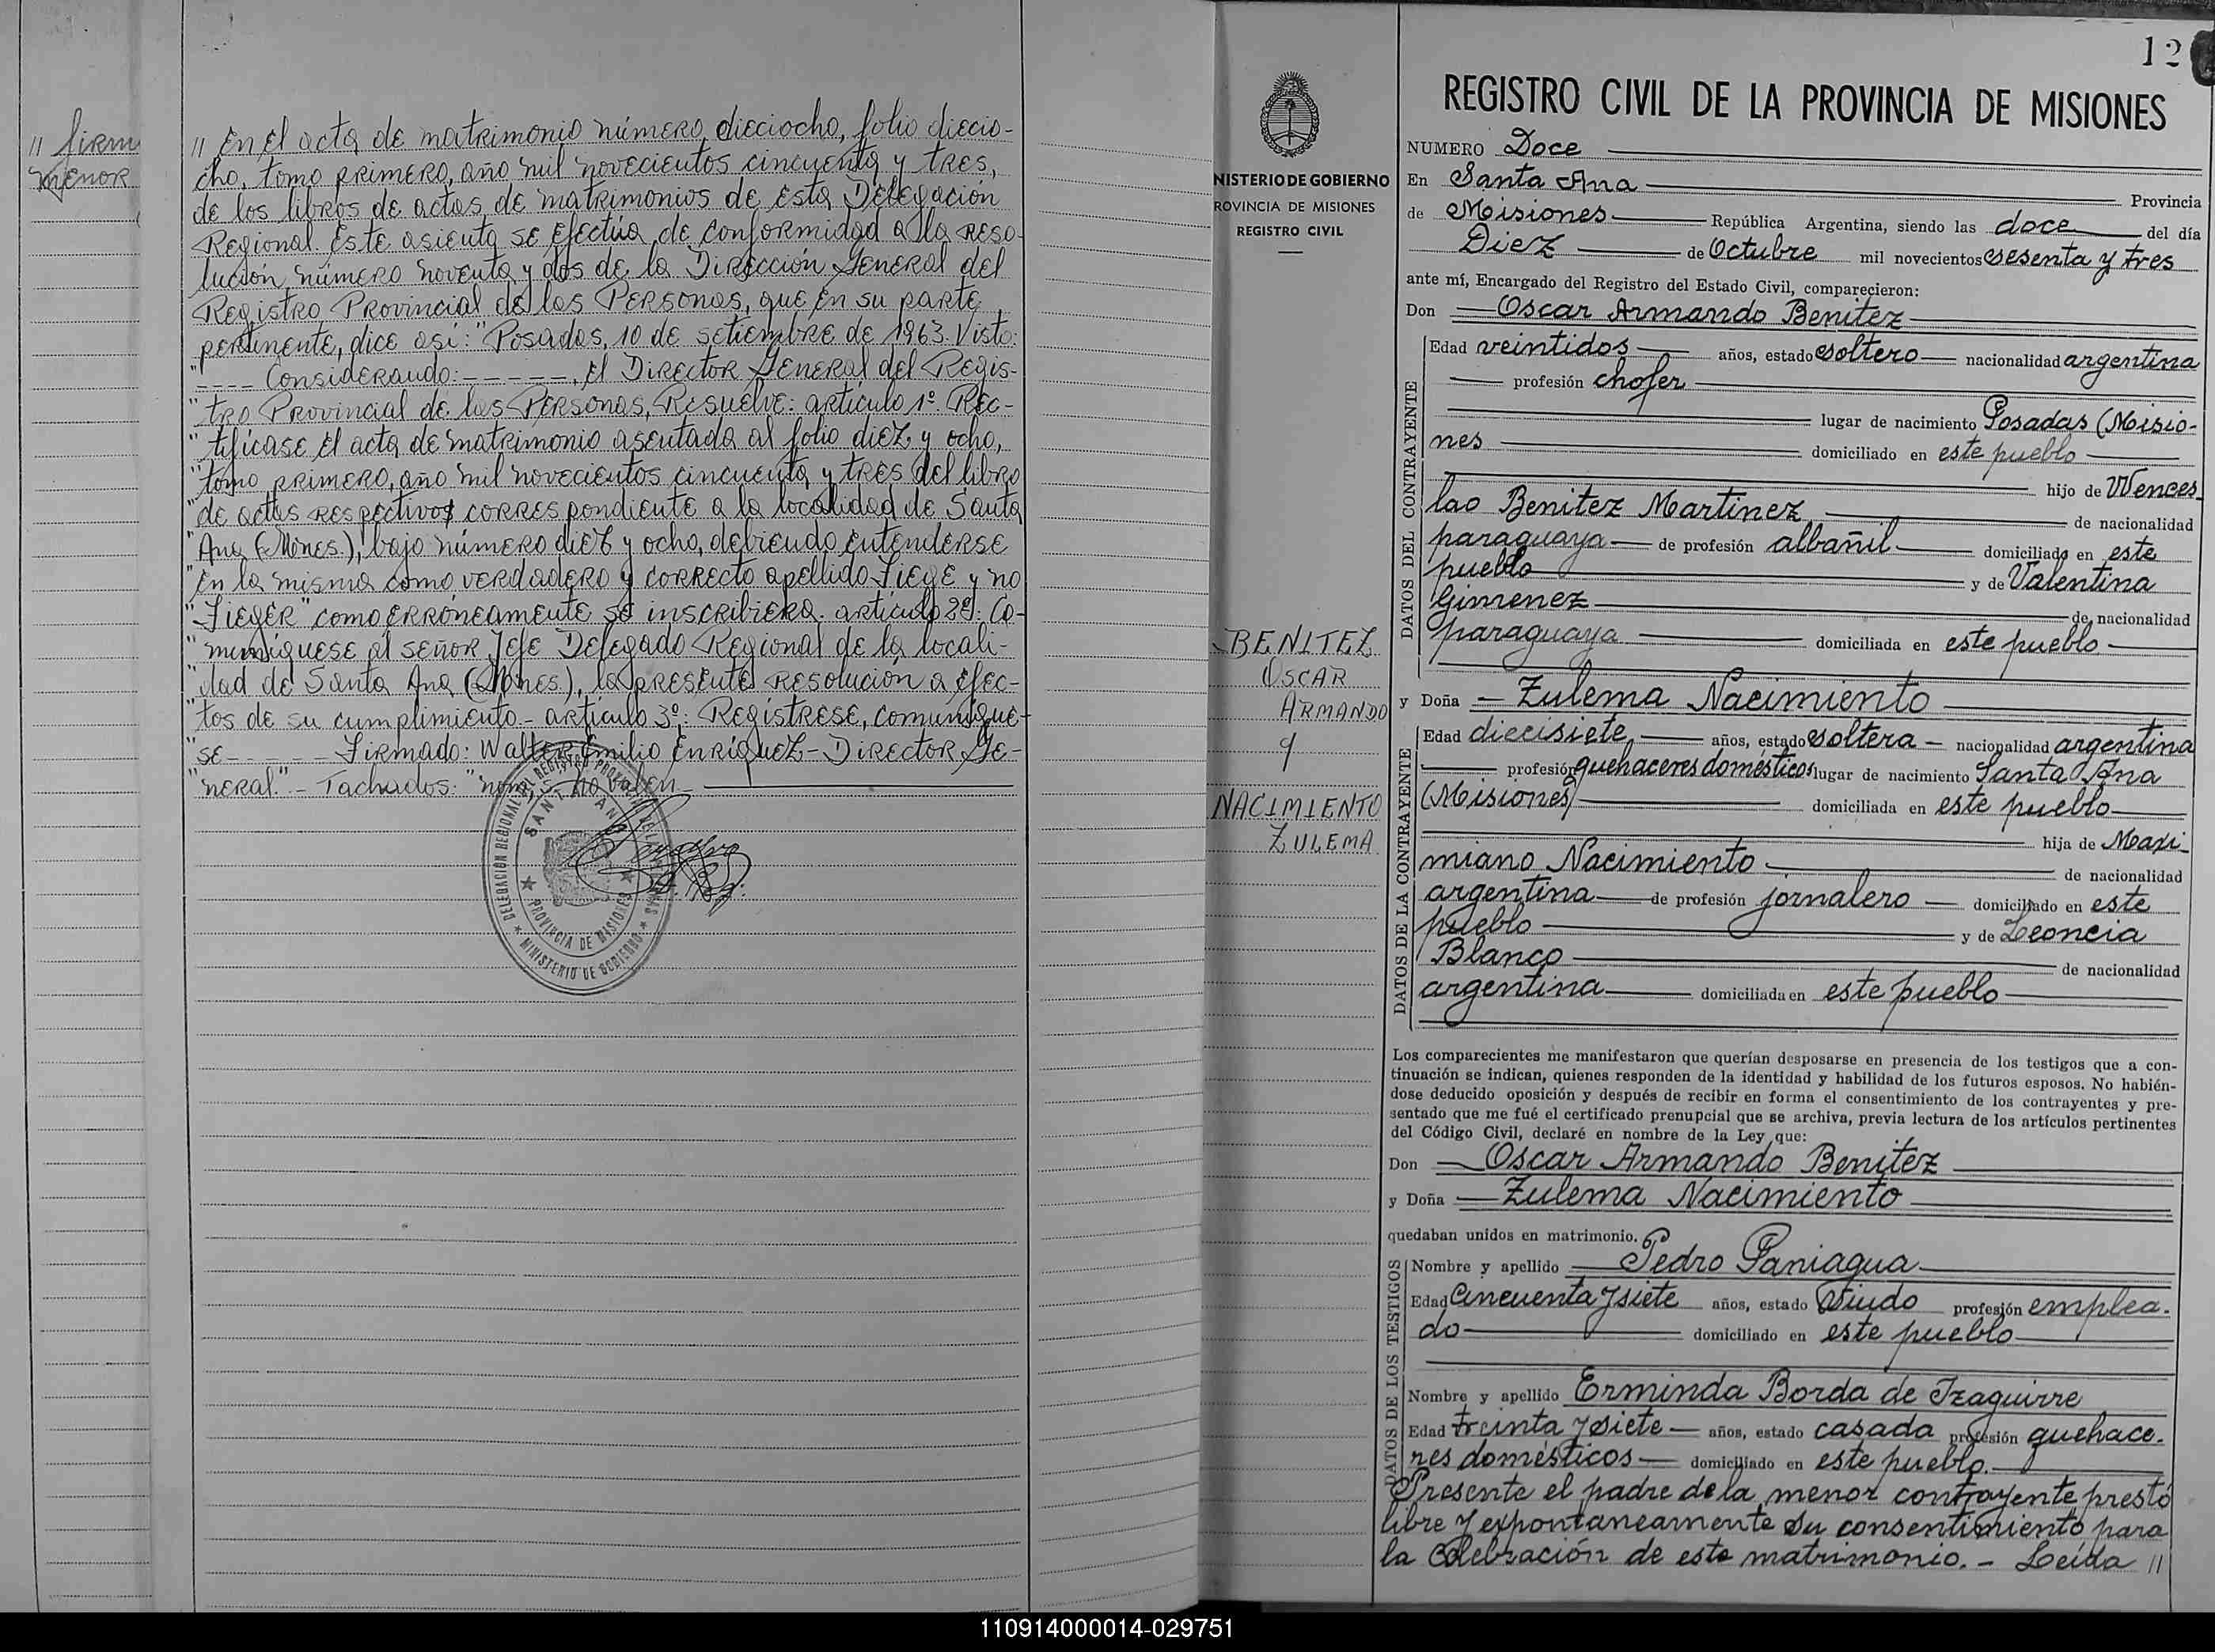 // firm
menor
// En el acta de matrimonio número dieciocho, folio diecio-
cho, tomo primero, año mil novecientos cincuenta y tres,
de los libros de actas de matrimonios de esta Delegación
Regional. Este asiento se efectúa de conformidad a la reso-
lución número noventa y dos de la Dirección General del
Registro Provincial de las Personas, que en su parte
pertinente, dice así: "Posadas, 10 de setiembre de 1963. Visto:
"---- Considerando: -----, El Director General del Regis-
"tro Provincial de las Personas, Resuelve: artículo 1º. Rec-
"tifícase el acta de matrimonio asentada al folio diez y ocho,
"tomo primero, año mil novecientos cincuenta y tres del libro
"de actas respectivos correspondiente a la localidad de Santa
"Ana (Mnes.), bajo número diez y ocho, debiendo entenderse
"en la misma como verdadero y correcto apellido Fiege y no
"Fieger" como erróneamente se inscribiera. artículo 2º: Co-
"muníquese al señor Jefe Delegado Regional de la locali-
"dad de Santa Ana (Mnes.), la presente Resolución a efec-
"tos de su cumplimiento.- artículo 3º: Regístrese, comuníque-
"se----- Firmado: Walter Emilio Enríquez - Director Ge-
"neral".- Tachados: s- no valen
DELEGACION REGIONAL DEL REGISTRO PROVINCIAL DE LAS PERSONAS
SANTA ANA
PROVINCIA DE MISIONES
MINISTERIO DE GOBIERNO
12
NISTERIO DE GOBIERNO
ROVINCIA DE MISIONES
REGISTRO CIVIL
BENITEZ
OSCAR
ARMANDO
y
NACIMIENTO
ZULEMA
REGISTRO CIVIL DE LA PROVINCIA DE MISIONES
NUMERO Doce
En Santa Ana Provincia
de Misiones República Argentina, siendo las doce del día
Diez de Octubre mil novecientos sesenta y tres
ante mí, Encargado del Registro del Estado Civil, comparecieron:
Don Oscar Armando Benitez
DATOS DEL CONTRAYENTE
Edad veintidos años, estado soltero nacionalidad argentina
profesión chofer
lugar de nacimiento Posadas (Misio-
nes domiciliado en este pueblo
hijo de Wences
lao Benitez Martinez de nacionalidad
paraguaya de profesión albañil domiciliado en este
pueblo y de Valentina
Gimenez de nacionalidad
paraguaya domiciliada en este pueblo
y Doña Zulema Nacimiento
DATOS DE LA CONTRAYENTE
Edad diecisiete años, estado soltera nacionalidad argentina
profesión quehaceres domésticos lugar de nacimiento Santa Ana
(Misiones) domiciliada en este pueblo
hija de Maxi-
miano Nacimiento de nacionalidad
argentina de profesión jornalero domiciliado en este
pueblo y de Leoncia
Blanco de nacionalidad
argentina domiciliada en este pueblo
Los comparecientes me manifestaron que querían desposarse en presencia de los testigos que a con-
tinuación se indican, quienes responden de la identidad y habilidad de los futuros esposos. No habién-
dose deducido oposición y después de recibir en forma el consentimiento de los contrayentes y pre-
sentado que me fué el certificado prenupcial que se archiva, previa lectura de los artículos pertinentes
del Código Civil, declaré en nombre de la Ley que:
Don Oscar Armando Benitez
y Doña Zulema Nacimiento
quedaban unidos en matrimonio.
DATOS DE LOS TESTIGOS
Nombre y apellido Pedro Paniagua
Edad Cincuenta y siete años, estado Viudo profesión emplea-
do domiciliado en este pueblo
Nombre y apellido Erminda Borda de Izaguirre
Edad treinta y siete años, estado casada profesión quehace-
res domésticos domiciliado en este pueblo.
Presente el padre de la menor contrayente prestó
libre y expontaneamente su consentimiento para
la celebración de este matrimonio. - Leída //
110914000014-029751